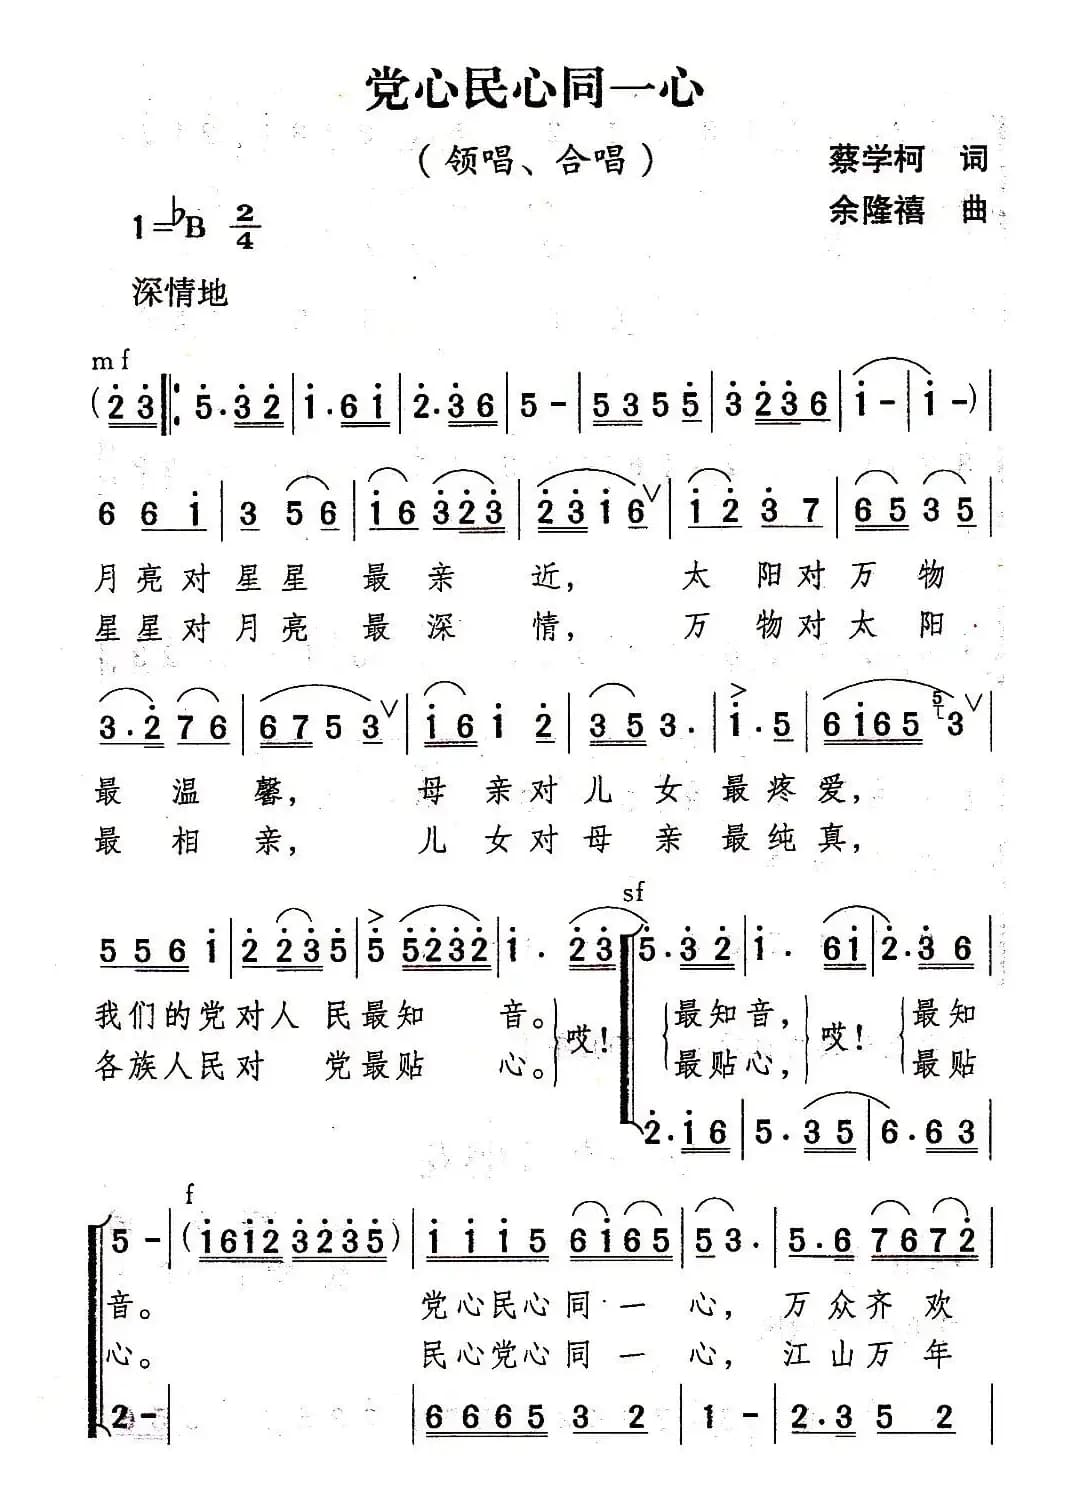 党心民心同一心
（领唱、合唱）
蔡学柯 词
余隆禧 曲
1=♭B 2/4
深情地
mf
(2 3 ‖: 5 . 3 2 | 1 . 6 1 | 2 . 3 6 | 5 - | 5 3 5 5 | 3 2 3 6 | 1 - | 1 - )|
6 6 1 | 3 5 6 | 1 6 3 2 3 | 2 3 1 6 ∨ | 1 2 3 7 | 6 5 3 5 |
月亮对星星 最亲 近， 太 阳对万 物
星星对月亮 最深 情， 万 物对太 阳
3 . 2 7 6 | 6 7 5 3 ∨ | 1 6 1 2 | 3 5 3 . | 1 . 5 | 6 1 6 5 5 3 ∨ |
最 温 馨， 母 亲对儿 女 最疼爱，
最 相 亲， 儿 女对母 亲 最纯真，
sf
5 5 6 1 | 2 2 3 5 | 5 5 2 3 2 | 1 . 2 3 | 5 . 3 2 | 1 . 6 1 | 2 . 3 6
我们的党对人 民最知 音。 哎！ 最知音， 哎！ 最知
各族人民对 党最贴 心。 最贴心， 最贴
2 . 1 6 | 5 . 3 5 | 6 . 6 3 |
f
5 - | (1 6 1 2 3 2 3 5) | 1 1 1 5 6 1 6 5 | 5 3 . | 5 . 6 7 6 7 2 |
音。 党心民心同一 心， 万众齐欢
心。 民心党心同一 心， 江山万年
2 - | | 6 6 6 5 3 2 | 1 - | 2 . 3 5 2 |